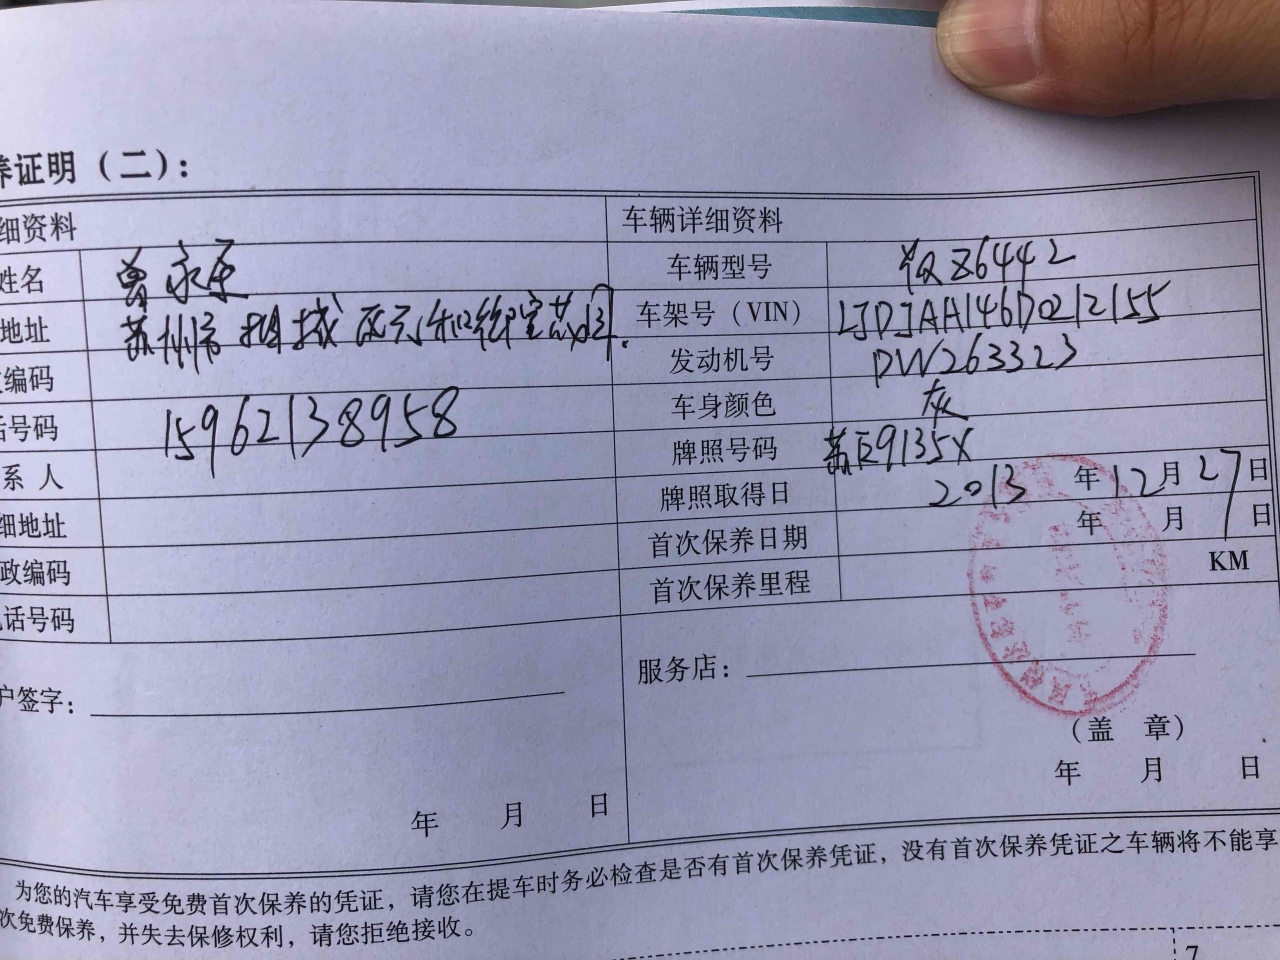 养证明（二）：
细资料
车辆详细资料
姓名 曾永原
车辆型号 Z6442
地址 苏州市
车架号（VIN） LJDJAA146D0212155
编码
发动机号 DW263323
话号码 15962138958
车身颜色 灰
系人
牌照号码 苏E9135X
细地址
牌照取得日 2013年12月27日
政编码
首次保养日期 年 月 日
话号码
首次保养里程 KM
户签字：
服务店：
（盖 章）
年 月 日
年 月 日
为您的汽车享受免费首次保养的凭证，请您在提车时务必检查是否有首次保养凭证，没有首次保养凭证之车辆将不能享
次免费保养，并失去保修权利，请您拒绝接收。
7